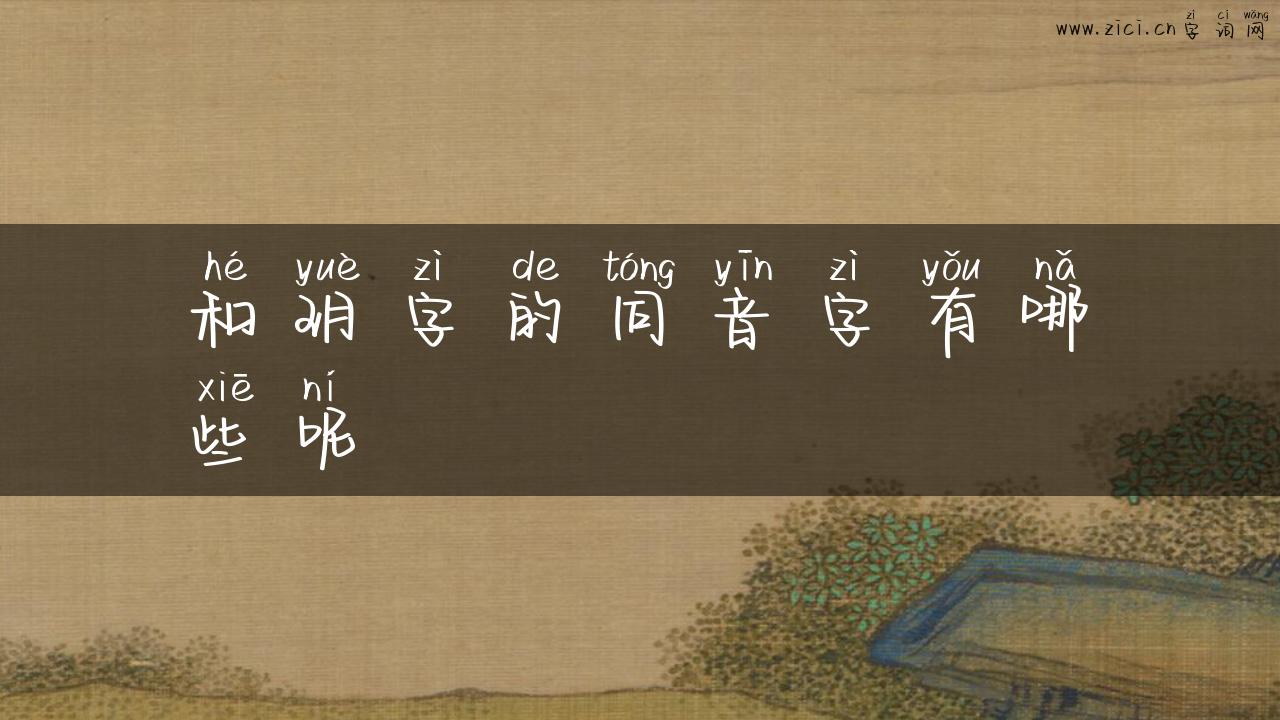 zì cí wǎng
www.zici.cn 字 词 网
hé yuè zì de tóng yīn zì yǒu nǎ
和 玥 字 的 同 音 字 有 哪
xiē ní
些 呢